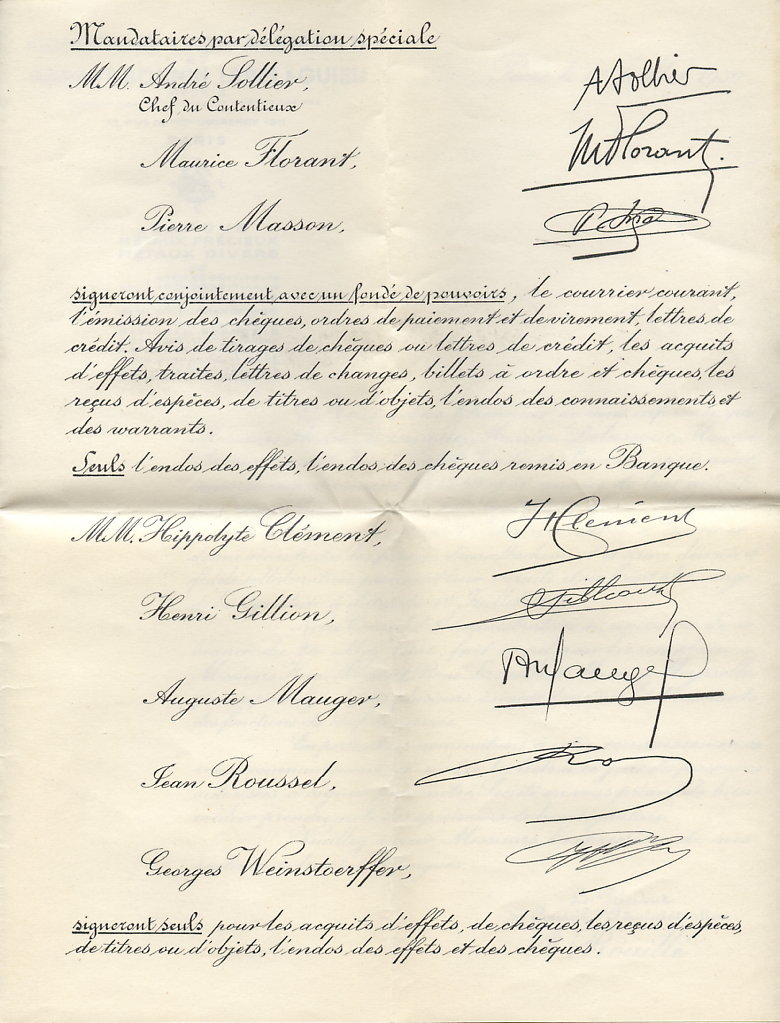 Mandataires par délégation spéciale
MM. André Sollier,
Chef du Contentieux
ASollier
Maurice Florant,
MFlorant.
Pierre Masson,
signeront conjointement avec un fondé de pouvoirs, le courrier courant,
l'émission des chèques, ordres de paiement et de virement, lettres de
crédit. Avis de tirages de chèques ou lettres de crédit, les acquits
d'effets, traites, lettres de changes, billets à ordre et chèques, les
reçus d'espèces, de titres ou d'objets, l'endos des connaissements et
des warrants.
Seuls l'endos des effets, l'endos des chèques remis en Banque.
MM. Hippolyte Clément,
HClément
Henri Gillion,
Gillion
Auguste Mauger,
AuMauger
Jean Roussel,
Georges Weinstoerffer,
signeront seuls pour les acquits d'effets, de chèques, les reçus d'espèces,
de titres ou d'objets, l'endos des effets et des chèques.